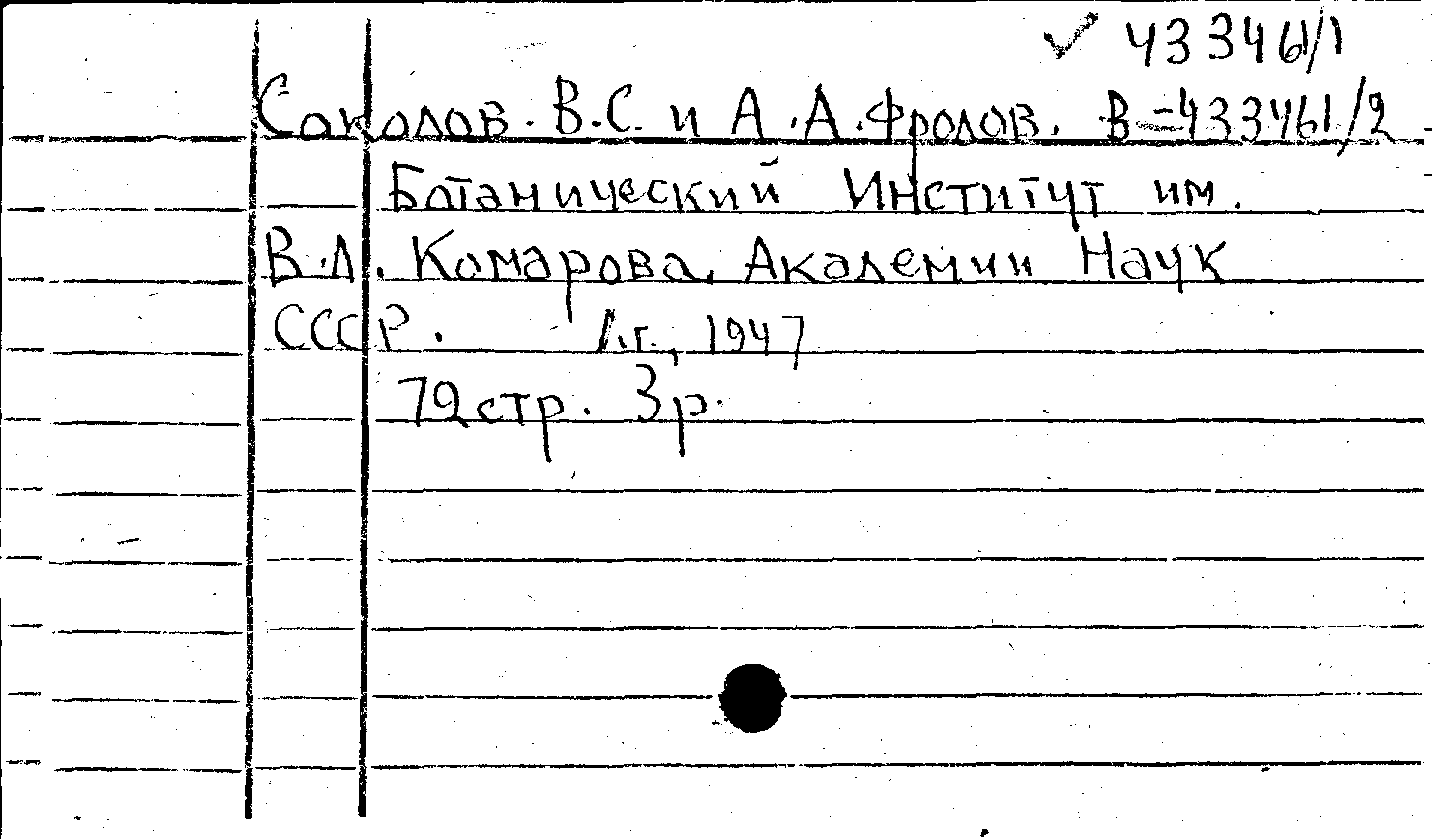 ✓ 433461/1
Соколов. В.С. и А.А.Фролов. В-433461/2
Ботанический Институт им.
В.Л. Комарова, Академии Наук
СССР. Лг., 1947
72стр. 3р.